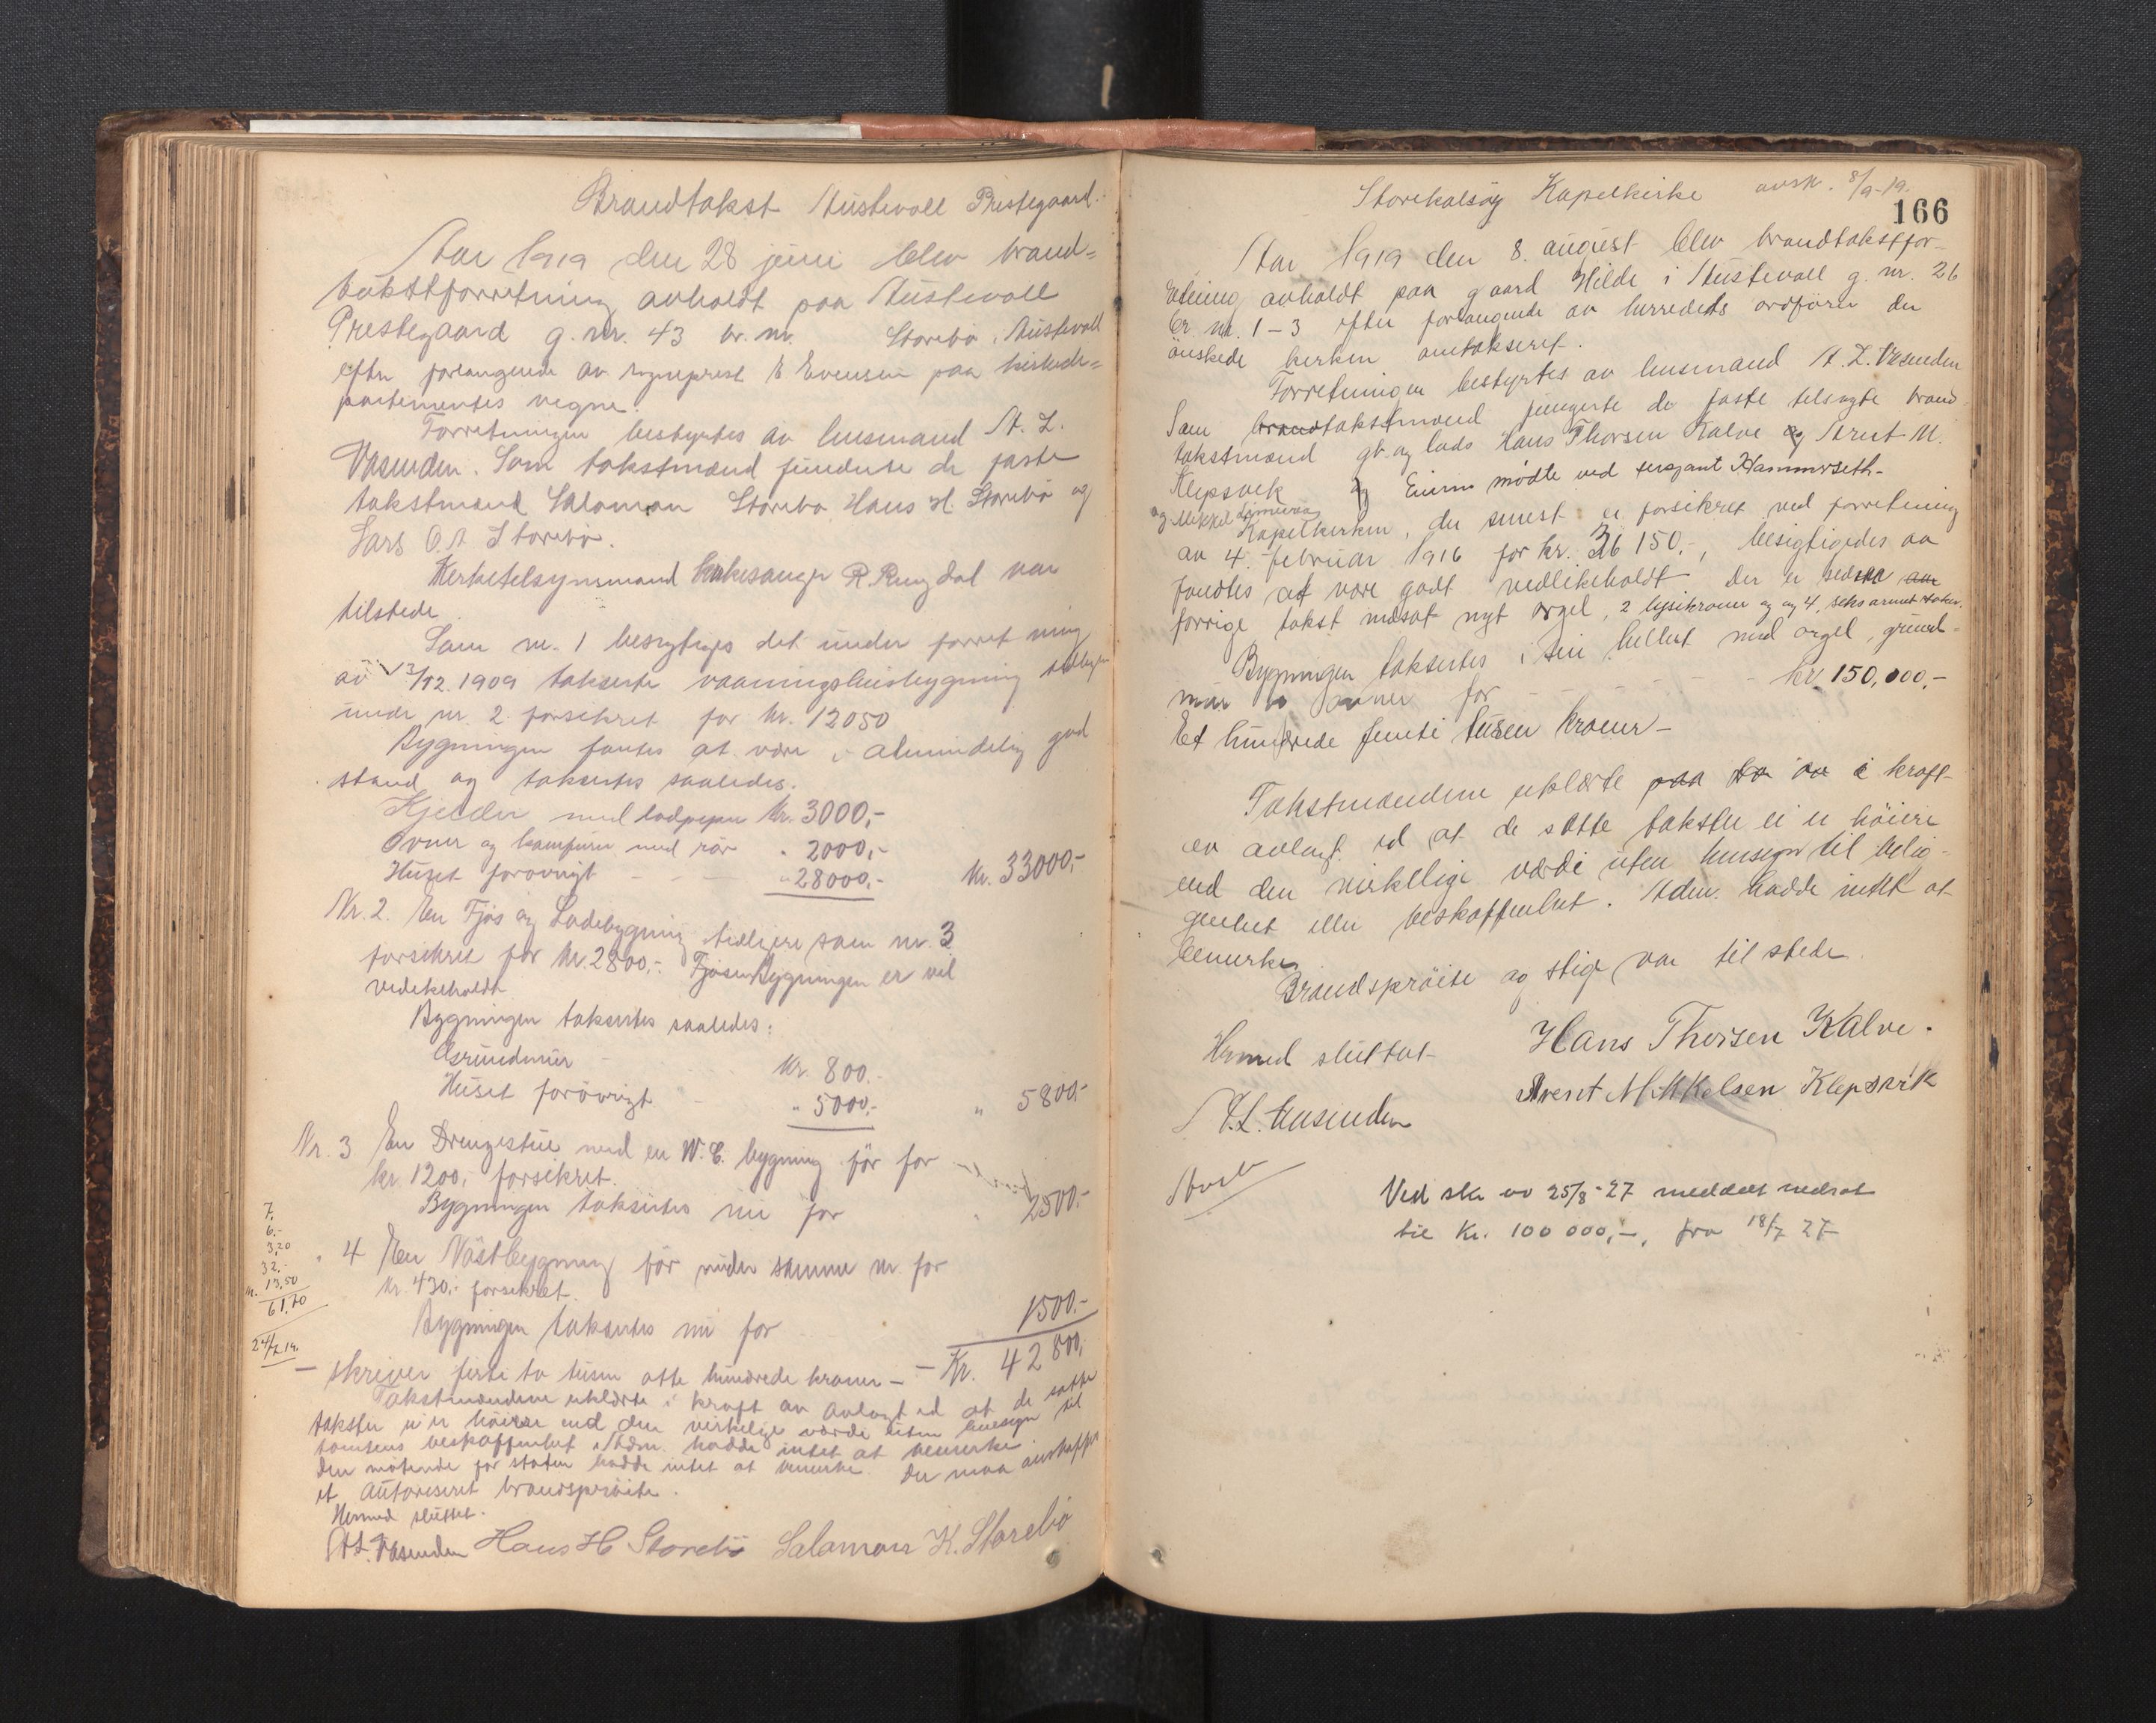 Brandtakst Austevoll Prestegaard.
Aar 1919 den 28 juni blev brand=
takstforretning avholdt paa Austevoll
Prestegaard g. nr. 43 br. nr. Storebø i Austevoll
efter forlangende av sogneprest E Evensen paa kirkede=
partementes vegne.
Forretningen bestyrtes av lensmand A. L.
Vasenden. Som takstmænd fungerte de faste
takstmænd Salomon Storebø Hans H. Storebø og
Lars O. A Storebø.
Kirketilsynsmand kirkesanger R. Ringdal var
tilstede
Som nr. 1 besigtiges det under forretning
av 13/12.1909 takserte vaaningshusbygning tidligere
under nr. 2 forsikret for kr. 12050
Bygningen fantes at være i almindelig god
stand og taksertes saaledes.
Kjelder med lodpiper kr. 3000,-
Ovner og kamfurer med rør " 2000,-
Huset forøvrigt - - - " 28000,- kr. 33000,-
Nr. 2. En Fjøs og Ladebygning tidligere som nr. 3
forsikret for kr. 2800,-. Fjøsen Bygningen er vel
vedekeholdt
Bygningen taksertes saaledes:
Grundmur - kr. 800.-
Huset forøvrigt - " 5000,- " 5800,-
Nr. 3 En Drengestue med en W.C. bygning før for
kr. 1200,- forsikret.
Bygningen taksertes nu for " 2500.-
7.
6.-
3,20
32.-
13,50
61,70
24/7 19.
" 4 En Nøstbygning før under samme nr. for
kr. 430,- forsikret.
Bygningen taksertes nu for 1500.-
- skriver firti to tusen otte hundrede kroner - - Kr. 42800,
Takstmændene erklærte i kraft av avlagt ed at de satte
takster ei er høiere end den virkelige værdi uten hensyn til
tomtens beskaffenhet. Adm. hadde intet at bemerke
Den møtende for staten hadde intet at bemerke. Der maa anskaffes
et autoriseret brandsprøite.
Hermed sluttet.
A L. Vasenden Hans H Storebø Salamon K. Storebø
Storekalsøy Kapelkirke avsk. 8/9-19.
166
Aar 1919 den 8. august blev brandtakstfor-
retning avholdt paa gaard Hilde i Austevoll g. nr. 26
br. nr. 1-3 efter forlangende av herredets ordfører der
ønskede kirken omtakseret.
Forretningen bestyrtes av lensmand A. L. Vasenden
Som brandtakstmænd fungerte de faste tilsagte brand
takstmænd gb. og lods Hans Thorsen Kalve og Arent M.
Klepsvik og Eieren mødte ved sersjant Hammerseth-
og Mikkel
Kapelkirken, der senest er forsikret ved forretning
av 4. februar 1916 for kr. 36150,-, besigtigedes og
fandtes at være godt vedlikeholdt. Der er siden
forrige takst indsat nyt orgel, 2 lysekroner og og 4, seks armet staker.
Bygningen taksertes i sin helhet med orgel, grund-
mur og ovner for - - - - - kr 150,000,-
Et hundrede femti tusen kroner-
Takstmændene erklærte paa i kraft
av avlagt ed at de satte takster ei er høiere
end den virkellige værdi uten hensyn til belig-
genhet eller beskaffenhet. Adm. hadde intet at
bemerke
Brandsprøite og stige var tilstede.
Hermed sluttet- Hans Thorsen Kalve.
Arent Mikkelsen Klepsvik
A. L. Vasenden
Ved skr av 25/8-27 meddelt nedsat
til Kr. 100 000,-, fra 18/7 27